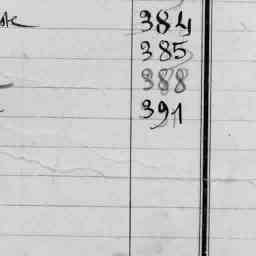 384
385
388
391